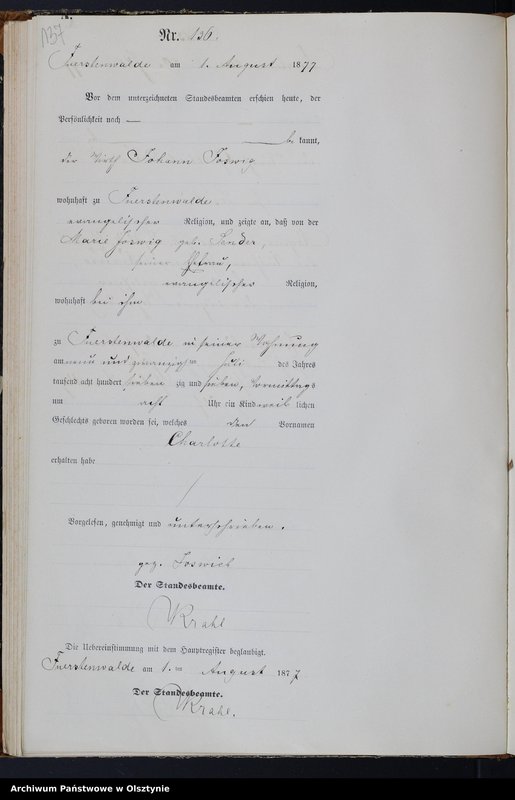 A.
137
Nr. 136.
Fuerstenwalde am 1. August 1877
Vor dem unterzeichneten Standesbeamten erschien heute, der
Persönlichkeit nach —
be kannt,
der Wirth Johann Joswig
wohnhaft zu Fuerstenwalde
evangelischer Religion, und zeigte an, daß von der
Marie Joswig geb. Sender,
seiner Ehefrau,
evangelischer Religion,
wohnhaft bei ihm
zu Fuerstenwalde in seiner Wohnung
am neun und zwanzigsten Juli des Jahres
tausend acht hundert sieben zig und sieben, Vormittags
um acht Uhr ein Kind weib lichen
Geschlechts geboren worden sei, welches den Vornamen
Charlotte
erhalten habe
Vorgelesen, genehmigt und unterschrieben.
gez. Joswich
Der Standesbeamte.
Krahl
Die Uebereinstimmung mit dem Hauptregister beglaubigt.
Fuerstenwalde am 1. ten August 1877
Der Standesbeamte.
Krahl.
Archiwum Państwowe w Olsztynie